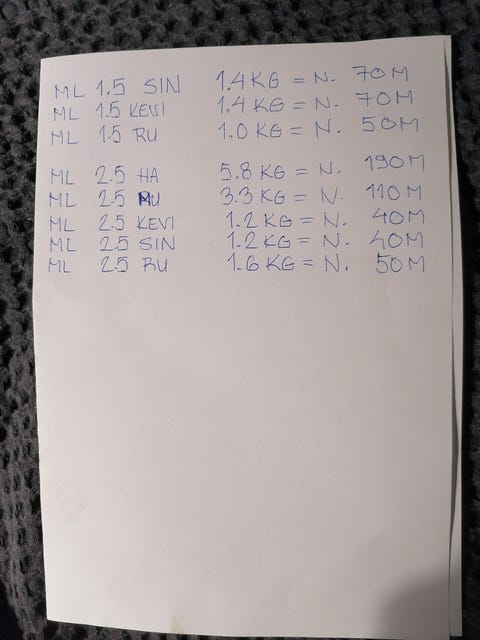 ML 1.5 SIN 1.4 KG = N. 70 M
ML 1.5 KEVI 1.4 KG = N. 70 M
ML 1.5 RU 1.0 KG = N. 50 M
ML 2.5 HA 5.8 KG = N. 190 M
ML 2.5 MU 3.3 KG = N. 110 M
ML 2.5 KEVI 1.2 KG = N. 40 M
ML 2.5 SIN 1.2 KG = N. 40 M
ML 2.5 RU 1.6 KG = N. 50 M